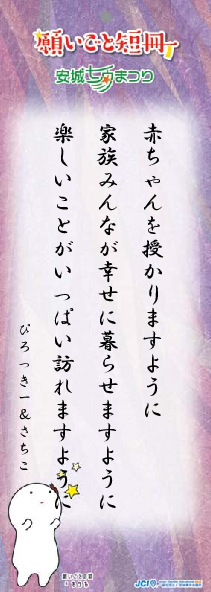 願いごと短冊
安城七夕まつり
赤ちゃんを授かりますように
家族みんなが幸せに暮らせますように
楽しいことがいっぱい訪れますように
ぴろっきー&さちこ
願いごと短冊
JCI